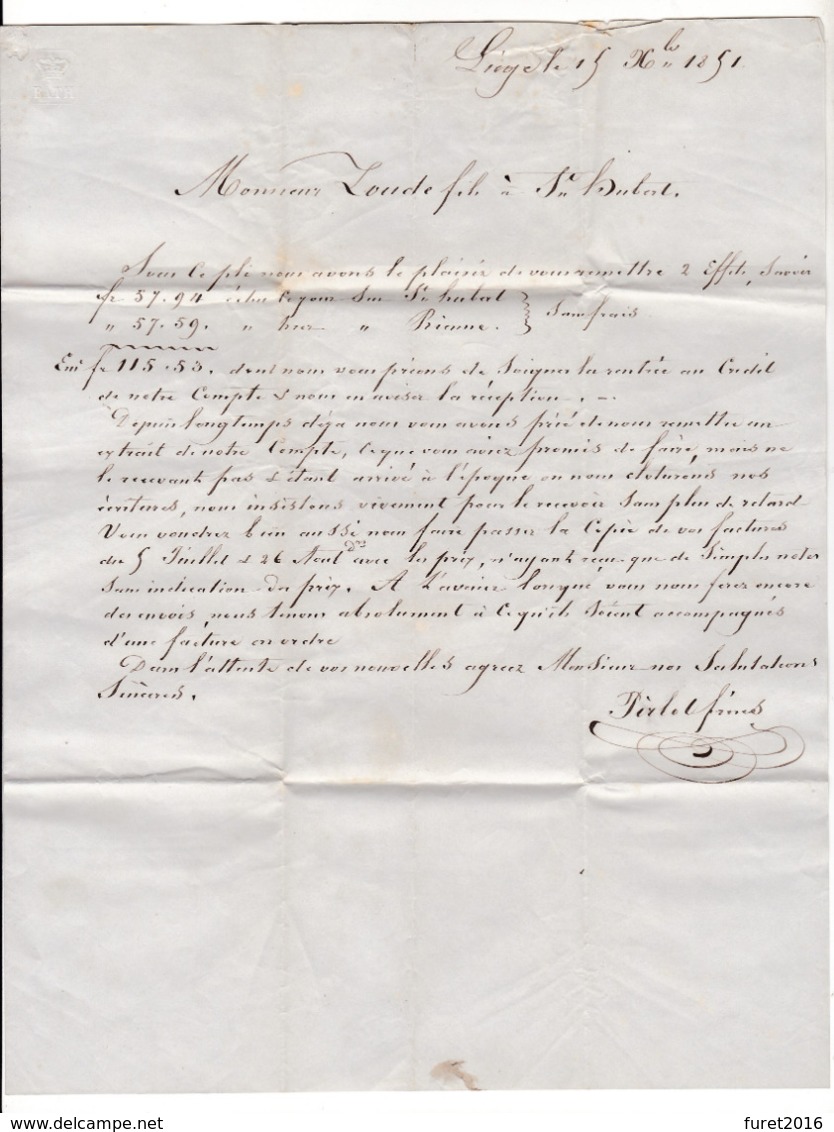 Liége le 15 Xbre 1851.
Monsieur Zoude fils à St Hubert.
Sous ce pli nous avons le plaisir de vous remettre 2 Effets, Savoir
fr 57.94 échu ce jour sur St hubert
" 57.59. " hier " Rienne. } Sans frais.
Ens fr 115.53. dont nous vous prions de Soigner la rentrée au Crédit
de notre Compte & nous en aviser la réception. -
Depuis longtemps déja nous vous avons prié de nous remettre un
extrait de notre Compte, ce que vous aviez promis de faire, mais ne
le recevant pas & étant arrivé à l'époque ou nous cloturons nos
écritures, nous insistons vivement pour le recevoir sans plus de retard
Vous voudrez bien aussi nous faire passer la Copie de vos factures
du 5 Juillet & 26 Aout drs avec les prix, n'ayant reçu que de Simples notes
sans indication du prix. A l'avenir lorsque vous nous ferez encore
des envois, nous tenons absolument à ce qu'ils soient accompagnés
d'une facture en ordre
Dans l'attente de vos nouvelles agreez Monsieur nos Salutations
Sincères.
Pirlot frères
delcampe.net
furet2016